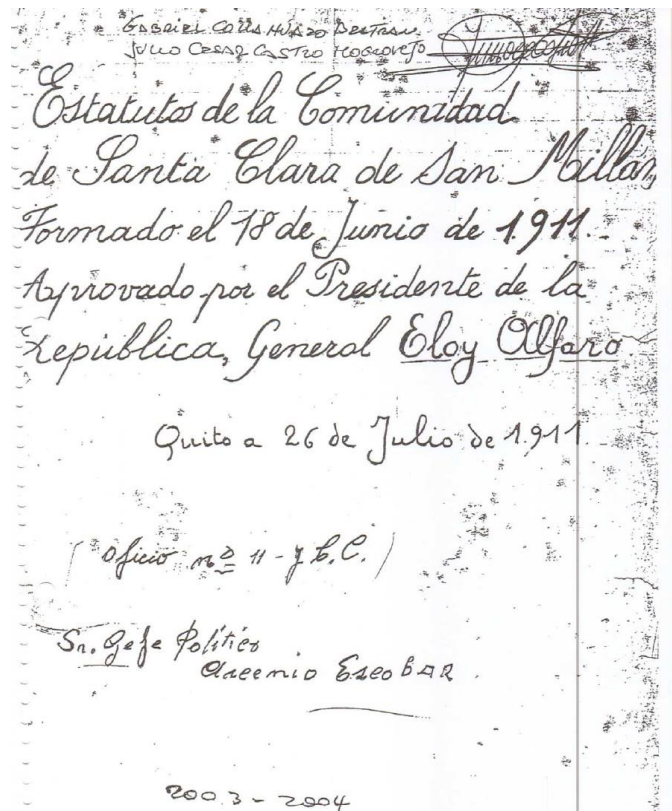 GABRIEL COLLAHUAZO BELTRAN
JULIO CESAR CASTRO MOGROVEJO
Estatutos de la Comunidad
de Santa Clara de San Millán,
Formado el 18 de Junio de 1.911.
Aprovado por el Presidente de la
República, General Eloy Alfaro.
Quito a 26 de Julio de 1.911.
(Oficio nº 11-J.C.)
Sr. Gefe Político
Arcenio EscobAR.
2003-2004